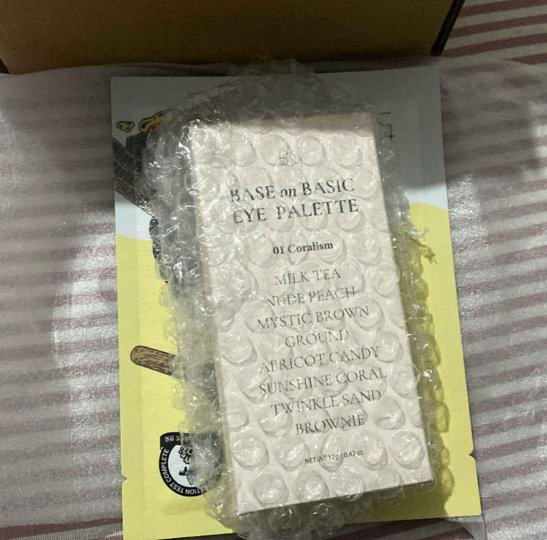 BASE on BASIC
EYE PALETTE
01 Coralism
MILK TEA
NUDE PEACH
MYSTIC BROWN
GROUND
APRICOT CANDY
SUNSHINE CORAL
TWINKLE SAND
BROWNIE
NET WT 12g / 0.42 oz.
TEST COMPLETE